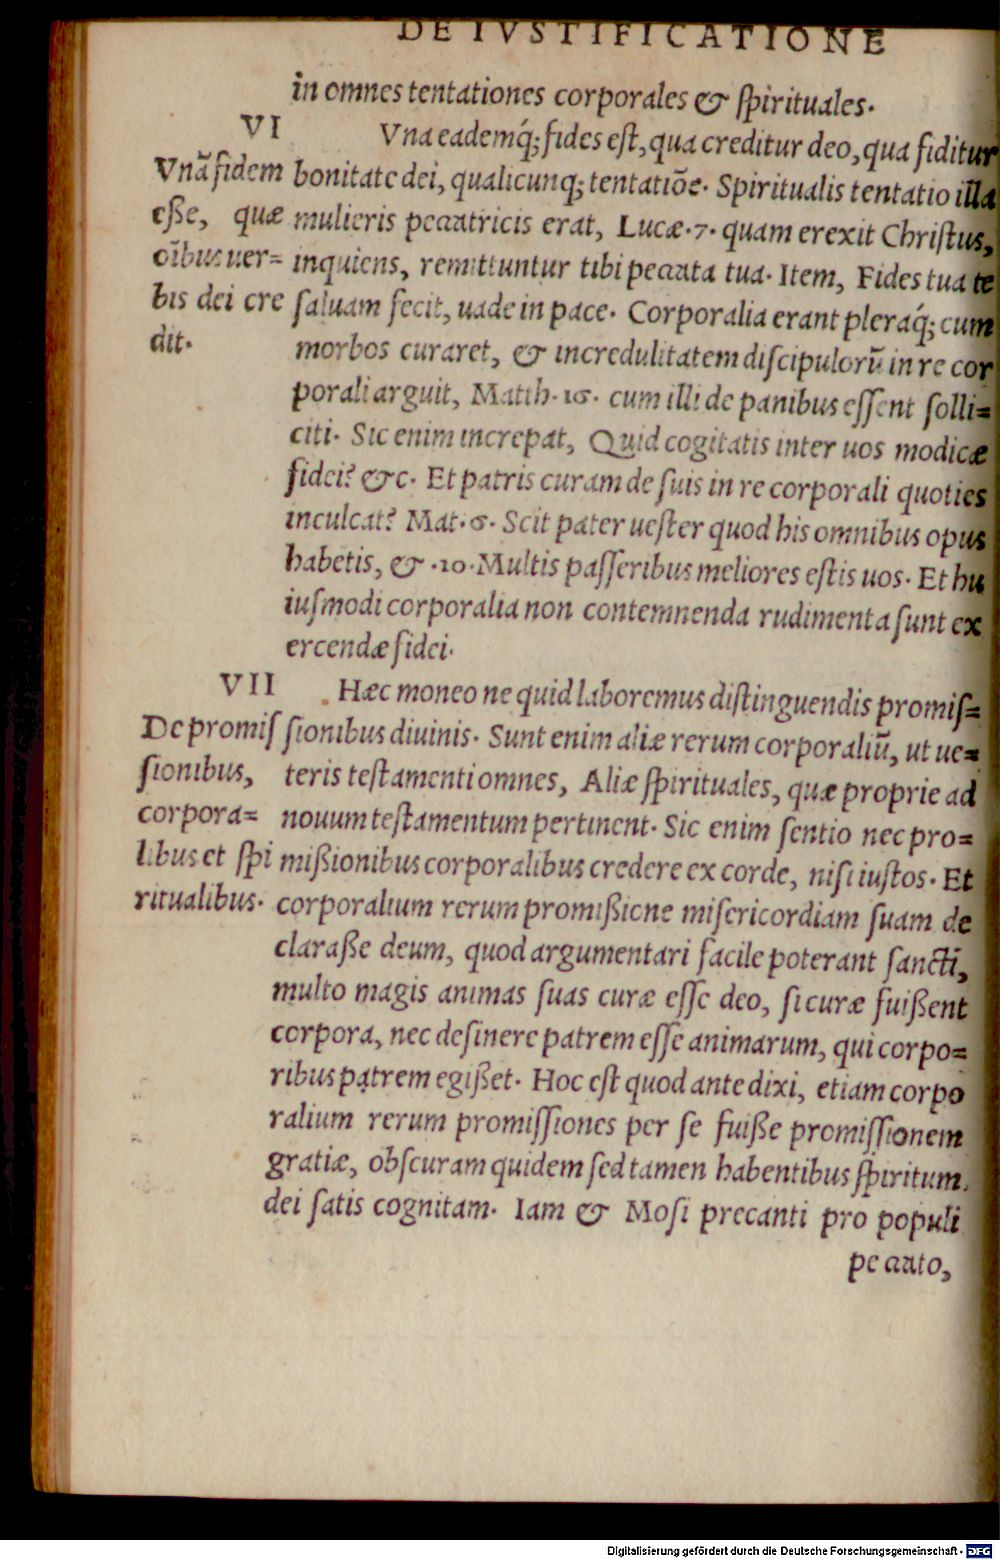 DE IVSTIFICATIONE
in omnes tentationes corporales & ſpirituales.
VI
Vna eademq́; fides eſt, qua creditur deo, qua fiditur
bonitate dei, qualicunq; tentatiõe. Spiritualis tentatio illa
mulieris peccatricis erat, Lucæ.7. quam erexit Chriſtus,
inquiens, remittuntur tibi peccata tua. Item, Fides tua te
ſaluam fecit, uade in pace. Corporalia erant pleraq́; cum
morbos curaret, & incredulitatem diſcipulorũ in re cor
porali arguit, Matth.16. cum illi de panibus eſſent ſolli=
citi. Sic enim increpat, Quid cogitatis inter uos modicæ
fidei? &c. Et patris curam de ſuis in re corporali quoties
inculcat? Mat.6. Scit pater ueſter quod his omnibus opus
habetis, & .10. Multis paſſeribus meliores eſtis uos. Et hu
iuſmodi corporalia non contemnenda rudimenta ſunt ex
ercendæ fidei.
Vnã fidem
eſſe, quæ
oĩbus uer=
bis dei cre
dit.
VII
Hæc moneo ne quid laboremus diſtinguendis promiſ=
ſionibus diuinis. Sunt enim aliæ rerum corporaliũ, ut ue=
teris teſtamenti omnes, Aliæ ſpirituales, quæ proprie ad
nouum teſtamentum pertinent. Sic enim ſentio nec pro=
mißionibus corporalibus credere ex corde, niſi iuſtos. Et
corporalium rerum promißione miſericordiam ſuam de
claraße deum, quod argumentari facile poterant ſancti,
multo magis animas ſuas curæ eſſe deo, ſi curæ fuißent
corpora, nec deſinere patrem eſſe animarum, qui corpo=
ribus patrem egißet. Hoc eſt quod ante dixi, etiam corpo
ralium rerum promiſſiones per ſe fuiße promiſſionem
gratiæ, obſcuram quidem ſed tamen habentibus ſpiritum
dei ſatis cognitam. Iam & Moſi precanti pro populi
peccato,
De promiſ
ſionibus,
corpora=
libus et ſpi
ritualibus.
Digitalisierung gefördert durch die Deutsche Forschungsgemeinschaft - DFG